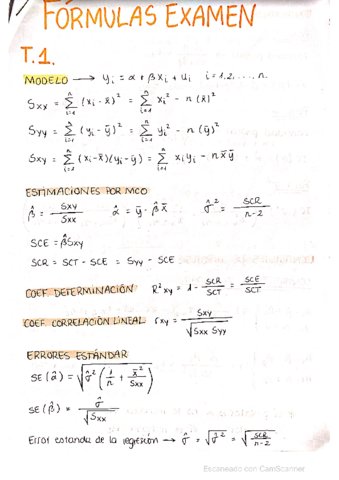 FÓRMULAS EXAMEN
T.1.
MODELO → yi = α + βxi + ui   i = 1,2, ..., n.
Sxx = Σ(i=1 → n) (xi - x̄)² = Σ(i=1 → n) xi² - n(x̄)²
Syy = Σ(i=1 → n) (yi - ȳ)² = Σ(i=1 → n) yi² - n(ȳ)²
Sxy = Σ(i=1 → n) (xi - x̄)(yi - ȳ) = Σ(i=1 → n) xiyi - nx̄ȳ
ESTIMACIONES POR MCO
β̂ = Sxy / Sxx   α̂ = ȳ - β̂x̄   σ̂² = SCR / n-2
SCE = β̂Sxy
SCR = SCT - SCE = Syy - SCE
COEF. DETERMINACIÓN   R²xy = 1 - SCR / SCT = SCE / SCT
COEF. CORRELACIÓN LINEAL   rxy = Sxy / √(Sxx Syy)
ERRORES ESTÁNDAR
SE(α̂) = √(σ̂² (1/n + x̄²/Sxx))
SE(β̂) = σ̂ / √Sxx
Error estandar de la regresión → σ̂ = √σ̂² = √(SCR / n-2)
Escaneado con CamScanner